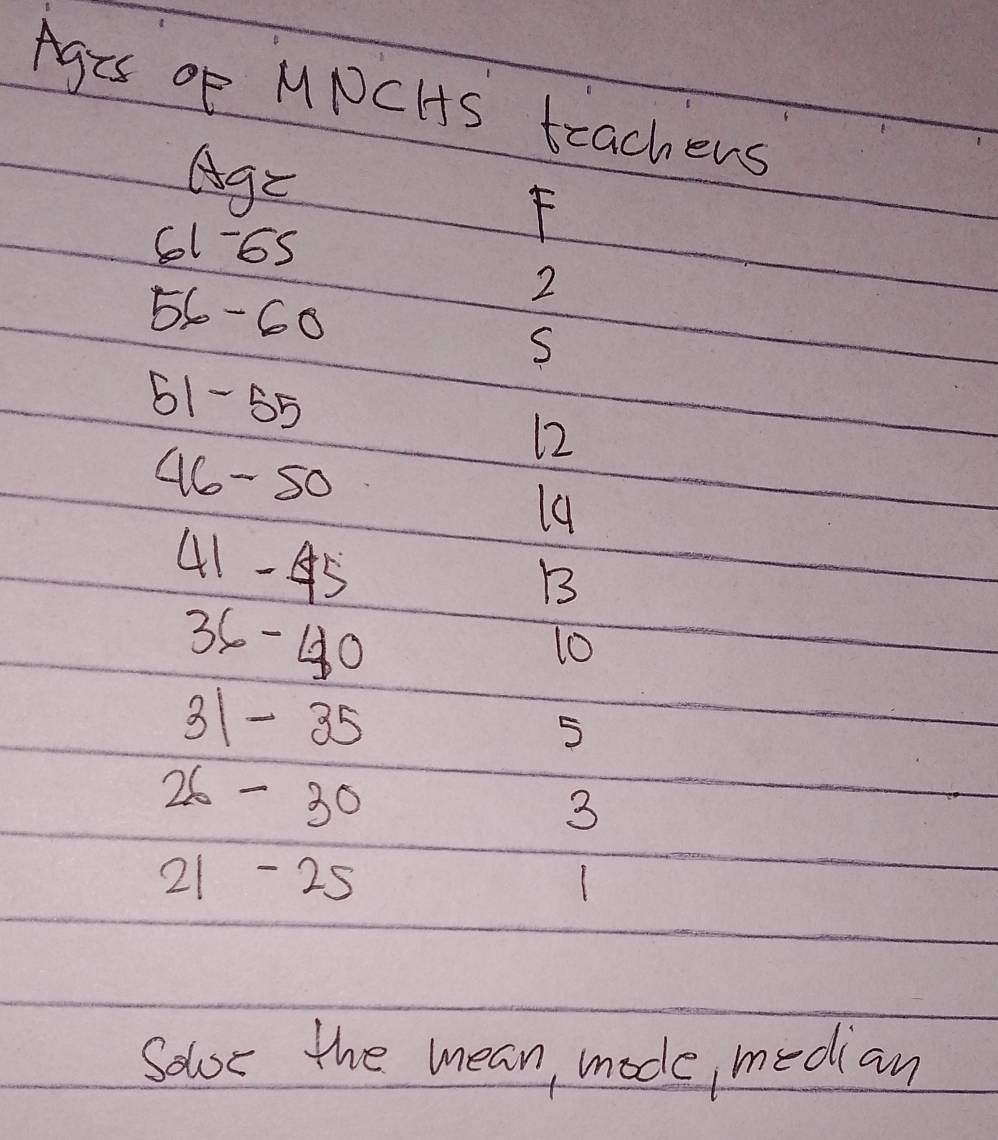 Ages of MNCHS teachers
Age F
61-65 2
56-60 5
51-55 12
46-50 14
41-45 13
36-40 10
31-35 5
26-30 3
21-25 1
Solve the mean, mode, median